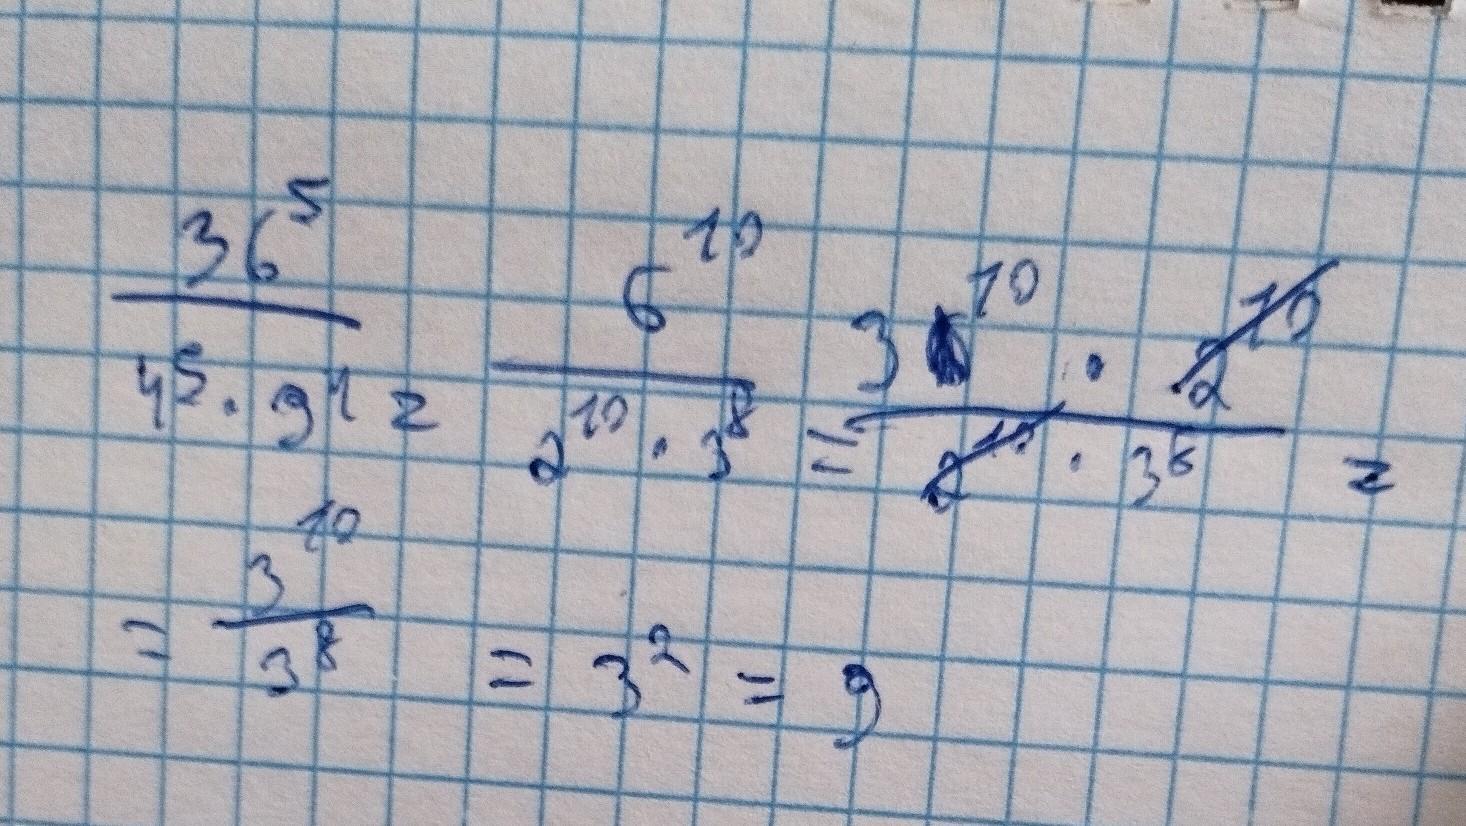 36^5 / (4^5 · 9^4) = 6^10 / (2^10 · 3^8) = (3^10 · 2^10) / (2^10 · 3^6) =
= 3^10 / 3^8 = 3^2 = 9